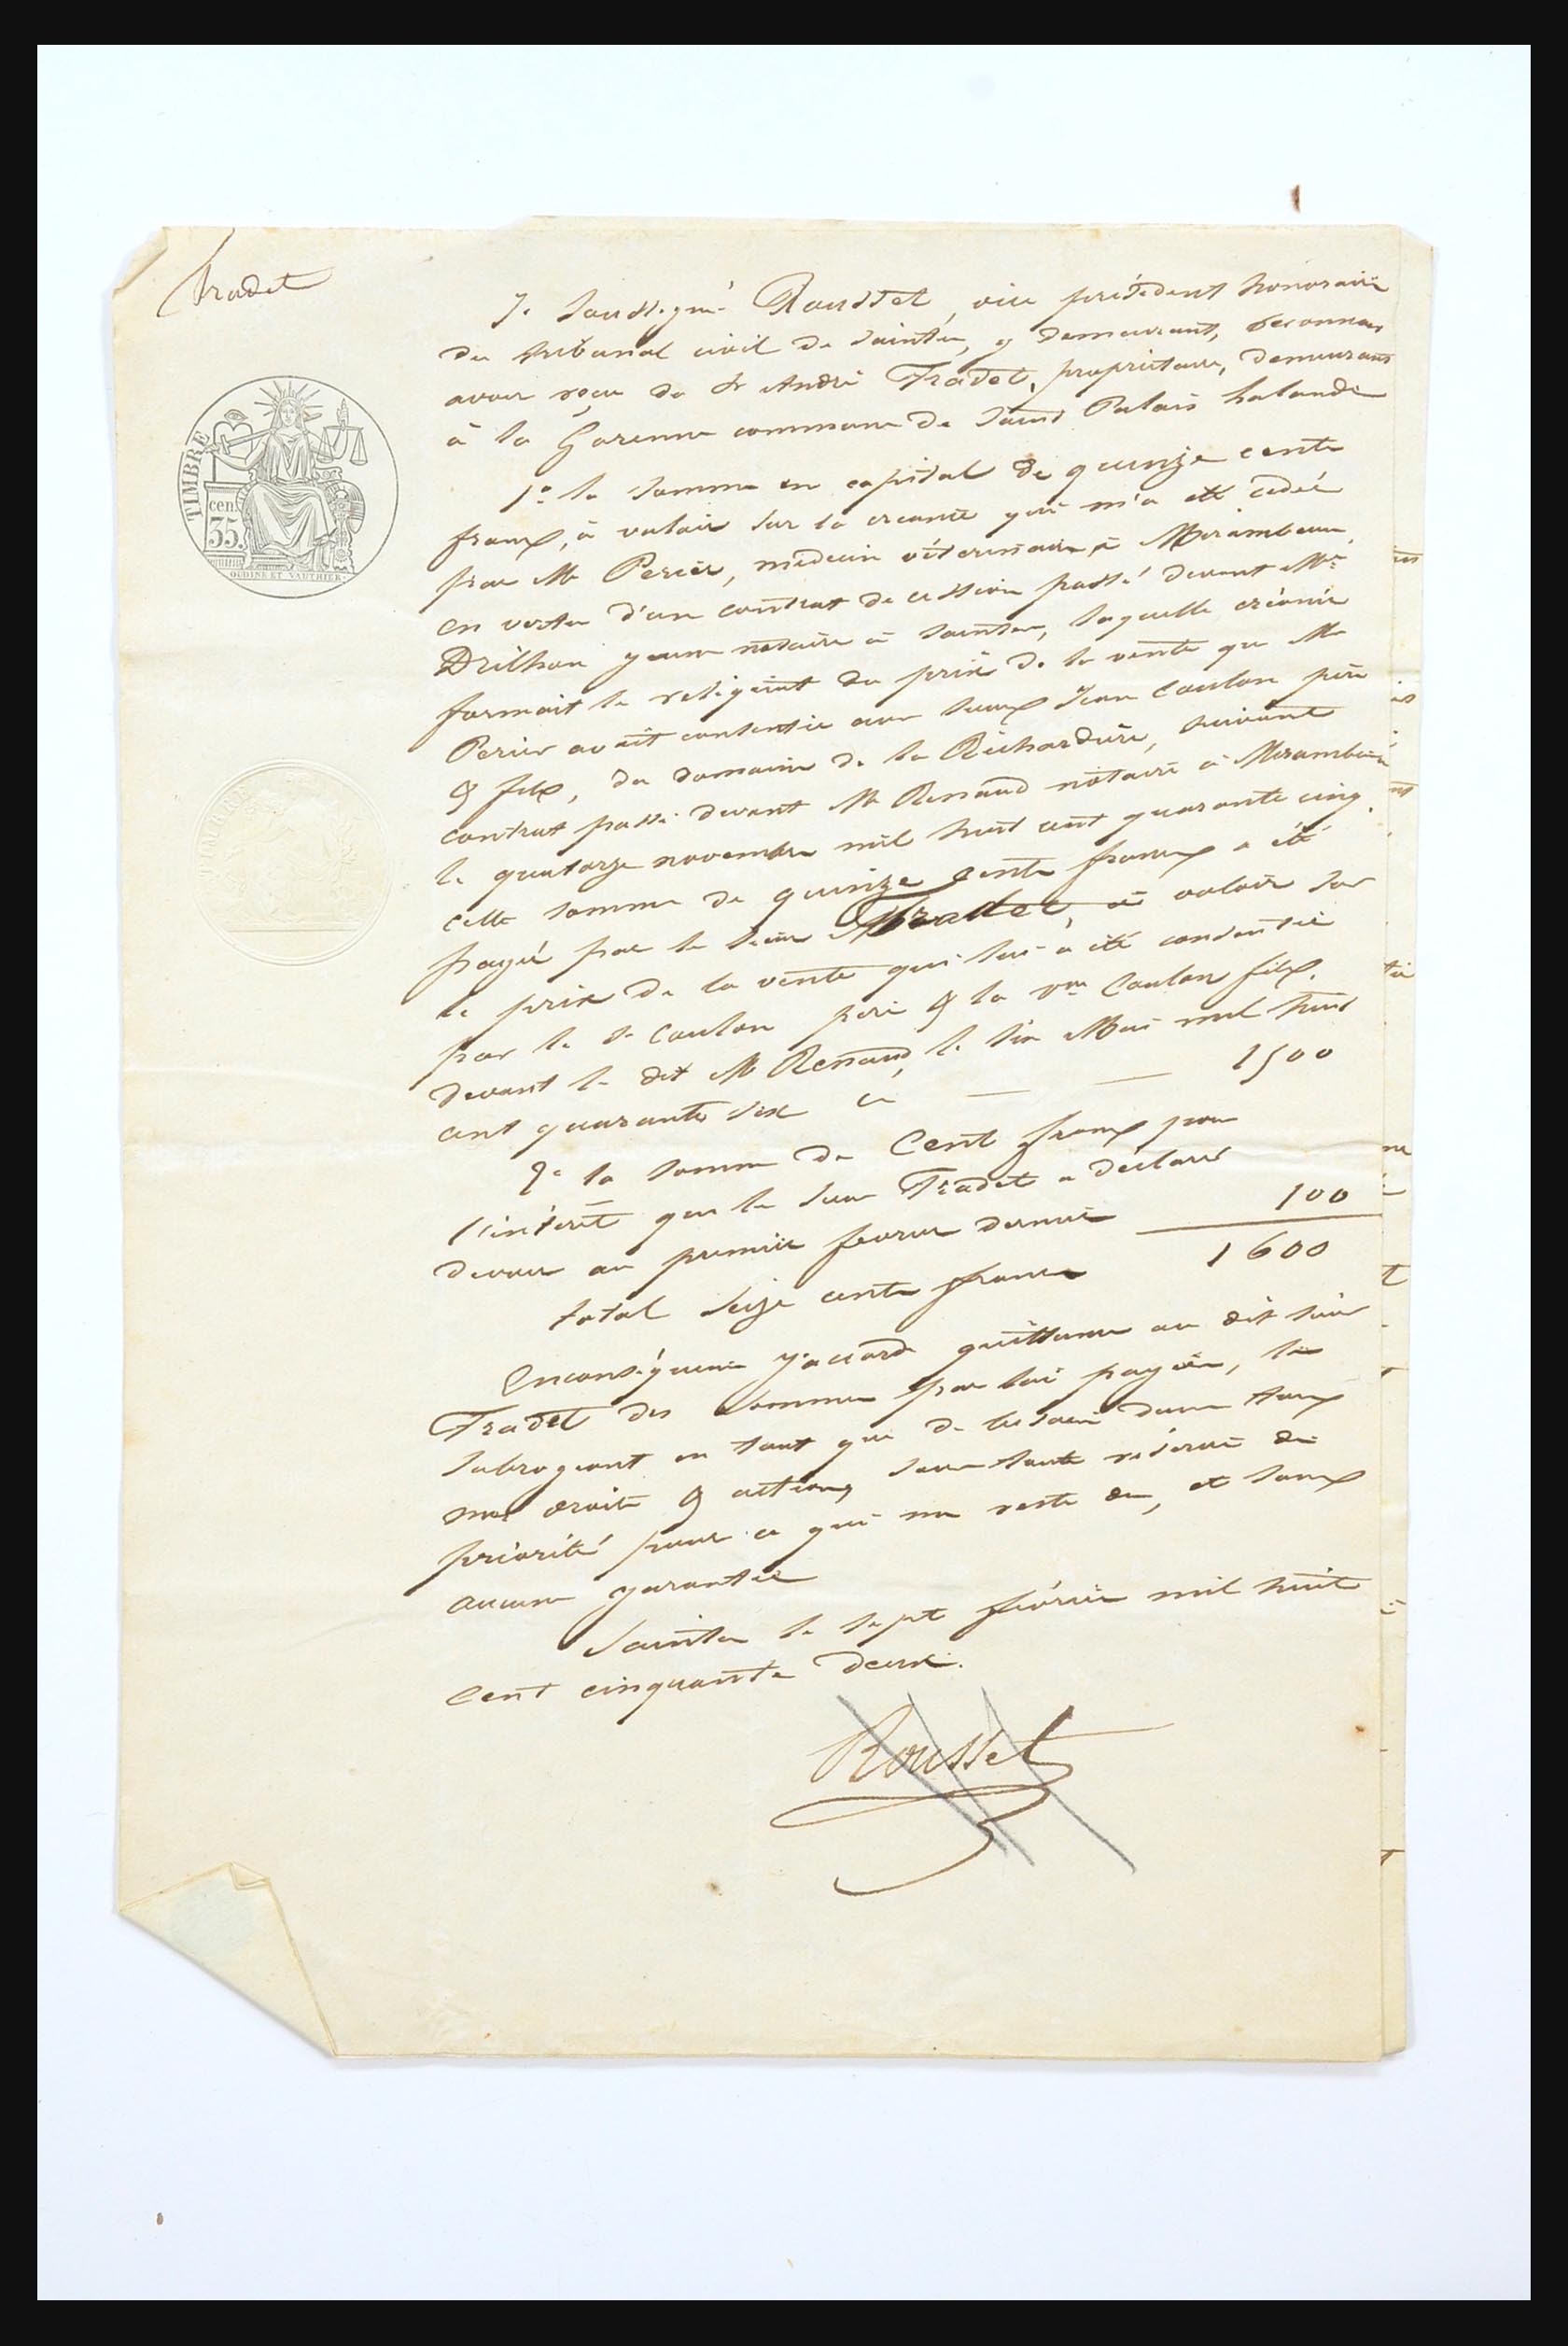 tradet
TIMBRE
cen.
35.
OUDINE ET VAUTHIER
Je soussigné Rousset, vice président honoraire
du tribunal civil de Saintes, y demeurant, reconnais
avoir reçu de Sr André Tradet, propriétaire, demeurant
à la Garenne commune de Saint Palais
1o la somme en capital de quinze cents
francs, à valoir sur la créance qui m'a été cédée
par Mr Perier, médecin vétérinaire à Mirambeau,
en vertu d'un contrat de cession passé devant Me
Drilhon jeune notaire à Saintes, laquelle créance
formait le reliquat du prix de la vente que Mr
Perier avait consentie aux sieurs Jean Coulon père
& fils, du domaine de la Richardière, suivant
contrat passé devant Me Renaud notaire à Mirambeau
le quatorze novembre mil huit cent quarante cinq.
cette somme de quinze cents francs a été
payée par le sieur Tradet, à valoir sur
le prix de la vente qui lui a été consentie
par le Sr Coulon père & la vve Coulon fils,
devant le dit Me Renaud, le six Mai mil huit
cent quarante six ci 1500
2o la somme de Cent francs pour
l'intérêt que le sieur Tradet a déclaré
devoir au premier février dernier 100
total seize cents francs 1600
En conséquence j'accorde quittance au dit sieur
Tradet des sommes par lui payées, le
subrogeant en tant que de besoin dans tous
mes droits & actions, sous toute réserve de
priorité pour ce qui me reste dû, et sans
aucune garantie
Saintes le sept février mil huit
cent cinquante deux.
Rousset